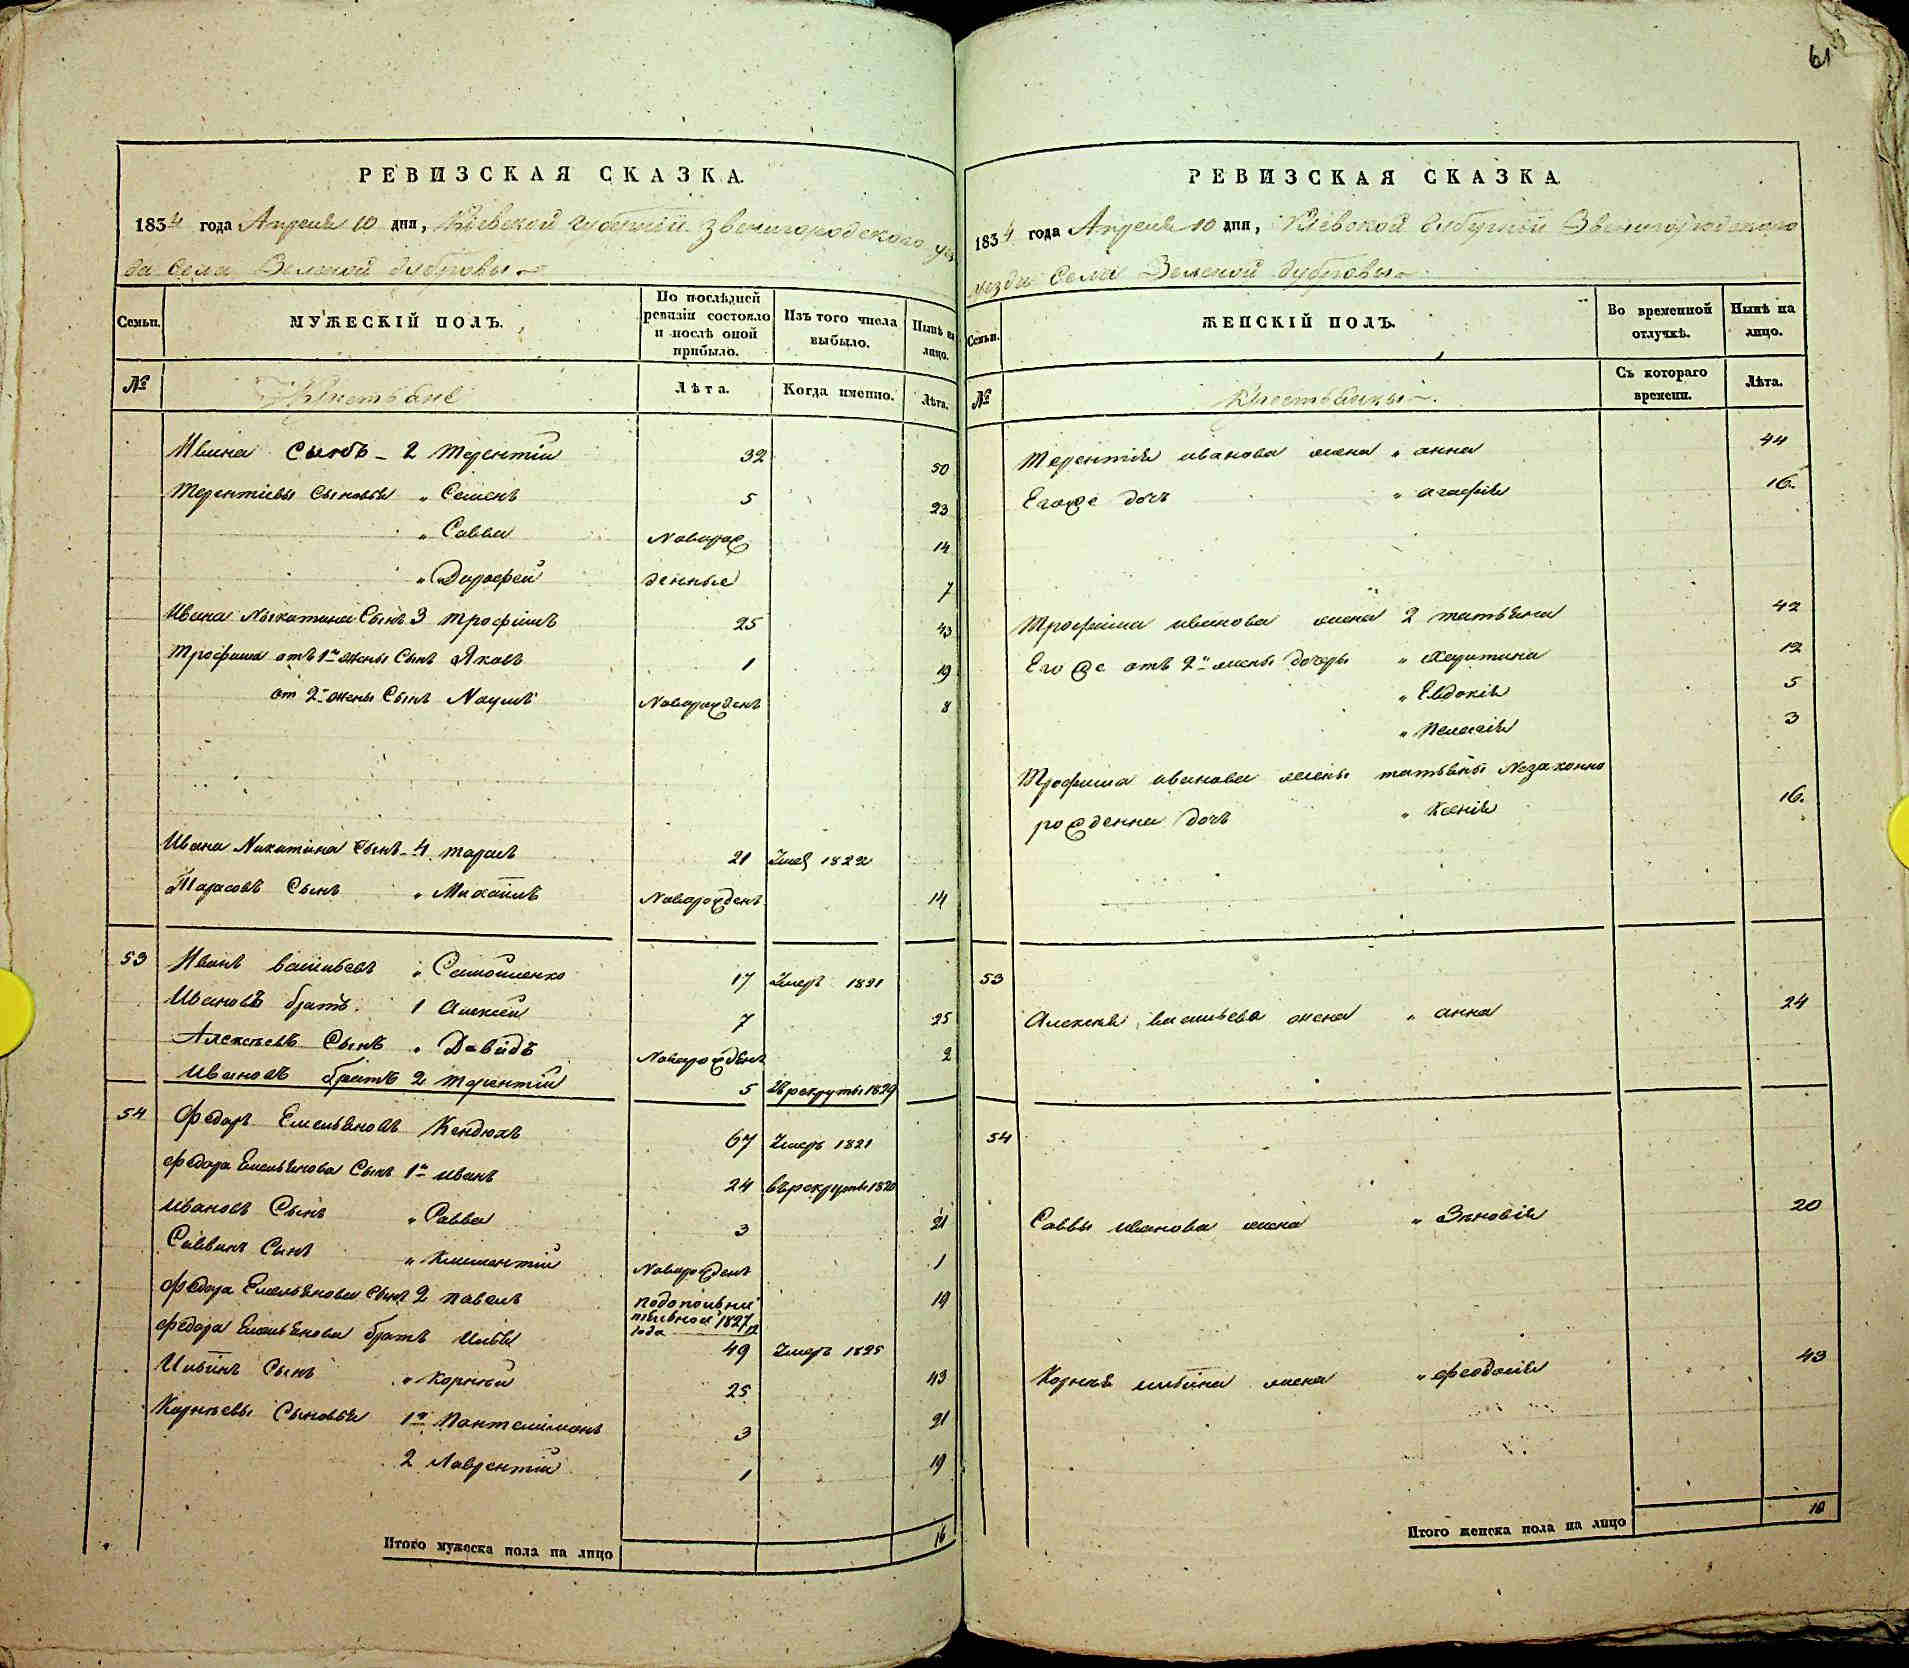 61
РЕВИЗСКАЯ СКАЗКА.
1834 года Апреля 10 дня, Кіевской губерніи Звенигородского уез
да села Зеленой дубровы
Семьи. МУЖЕСКІЙ ПОЛЪ. По послѣдней ревизіи состояло и послѣ оной прибыло. Изъ того числа выбыло. Нынѣ на лицо.
№ Крестьяне Лѣта. Когда именно. Лѣта.
Ивана сынъ 2 Терентій 32 50
Терентіевы сыновья " Семенъ 5 23
" Савва Новорож 14
" Дорофей денные 7
Ивана Никитина Сынъ 3 Трофимъ 25 43
Трофима отъ 1й жены Сынъ Яковъ 1 19
от 2й жены Сынъ Наумъ Новорожденъ 8
Ивана Никитина сынъ 4 тарасъ 21 Умер 1822
Тарасовъ Сынъ " Михаилъ Новорожденъ 14
53 Иванъ васильевъ " Самойленко 17 Умеръ 1821
Ивановъ братъ 1 Алексѣй 7 25
Алексѣевъ Сынъ " Давидъ Новорожденъ 2
Ивановъ братъ 2 терентій 5 Въ рекруты 1829
54 Федоръ Емельяновъ Кендюхъ 67 Умеръ 1821
Федора Емельянова Сынъ 1й иванъ 24 въ рекруты 1820
Ивановъ Сынъ " Савва 3 21
Саввинъ Сынъ " Климентій Новорожденъ 1
Федора Емельянова Сынъ 2 павелъ 1827 года 12 19
Федора Емельянова братъ Илья 49 Умеръ 1825
Ильинъ Сынъ " Корнѣй 25 43
Корнѣевы Сыновья 1й Пантелимонъ 3 21
2 Лаврентій 1 19
Итого мужеска пола на лицо 16
РЕВИЗСКАЯ СКАЗКА
1834 года Апреля 10 дня, Кіевской губерніи Звенигородского
уезда села Зеленой дубровы
Семьи. ЖЕНСКІЙ ПОЛЪ. Во временной отлучкѣ. Нынѣ на лицо.
№ Крестьянки Съ котораго времени. Лѣта.
Терентія иванова жена " анна 44
Его же дочь " агафія 16.
Трофима иванова жена 2 татьяна 42
Его же отъ 2й жены дочери " харитина 12
" Евдокія 5
" Пелагія 3
Трофима иванова жены татьяны Незаконно
рожденна дочь " Ксенія 16.
53
Алексѣя васильева жена " анна 24
54
Саввы иванова жена " Зѣновія 20
Корнѣя ильина жена " феодосія 43
Итого женска пола на лицо 10